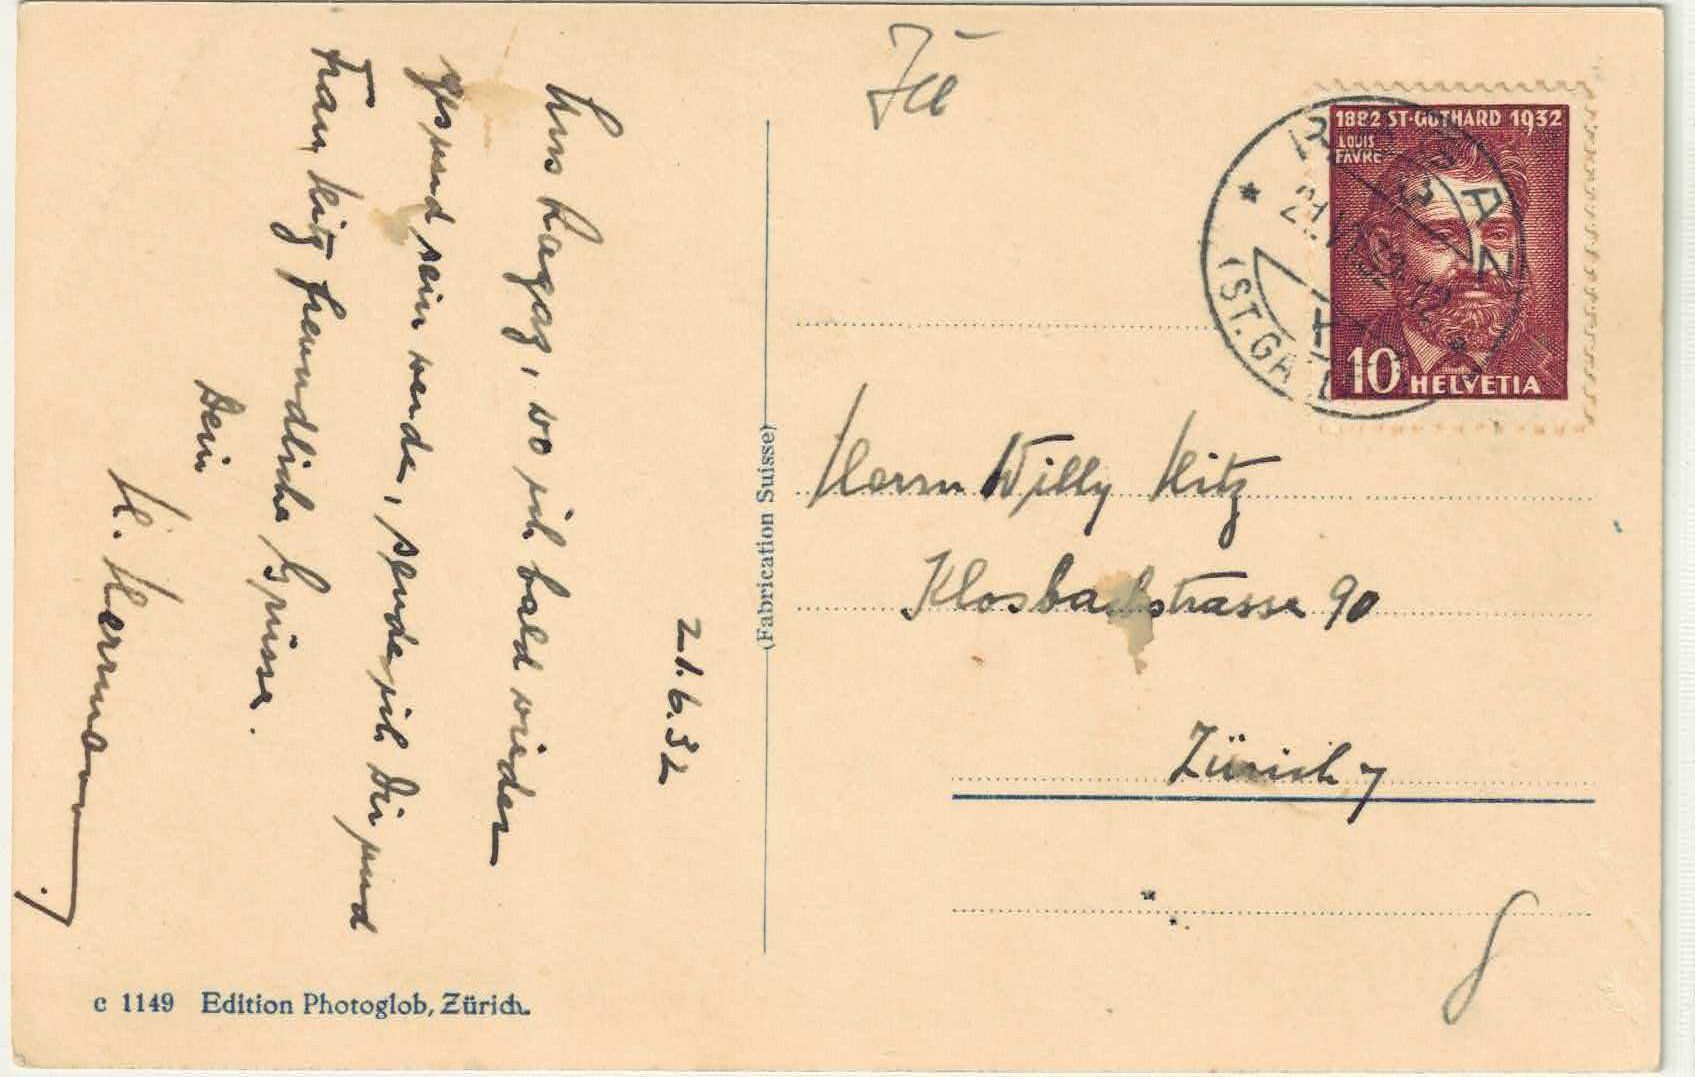 21.6.32
Aus Ragaz, wo ich bald wieder
gesund sein werde, sende ich Dir und
Frau Hitz freundliche Grüsse.
Dein
H. Herrmann.
c 1149 Edition Photoglob, Zürich.
(Fabrication Suisse)
1882 ST-GOTHARD 1932
LOUIS
FAVRE
10 HELVETIA
RAGAZ
21.VI.32.12
(ST. GALLEN)
Herrn Willy Hitz
Klosbachstrasse 90
Zürich 7